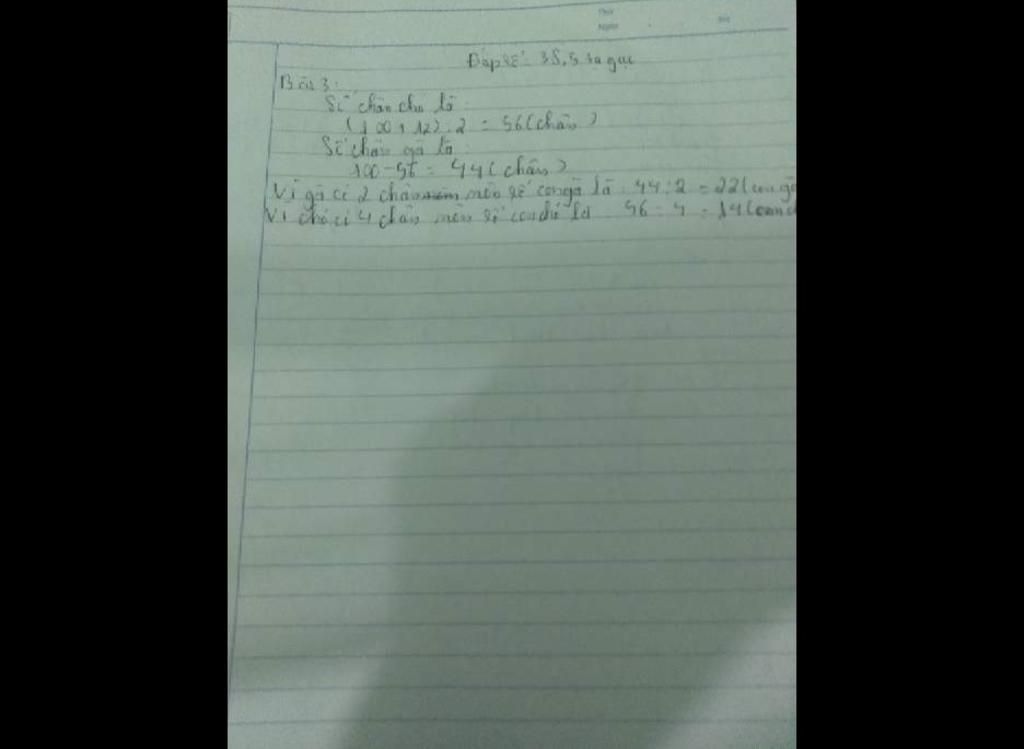 Thứ
Ngày
Đáp số: 35,5 
Bài 3:
Số chân chó là
(100 + 12) : 2 = 56 (chân)
Số chân gà là
100 - 56 = 44 (chân)
Vì gà có 2 chân nên số con gà là : 44 : 2 = 22 (con gà
Vì chó có 4 chân nên số con chó là : 56 : 4 = 14 (con c